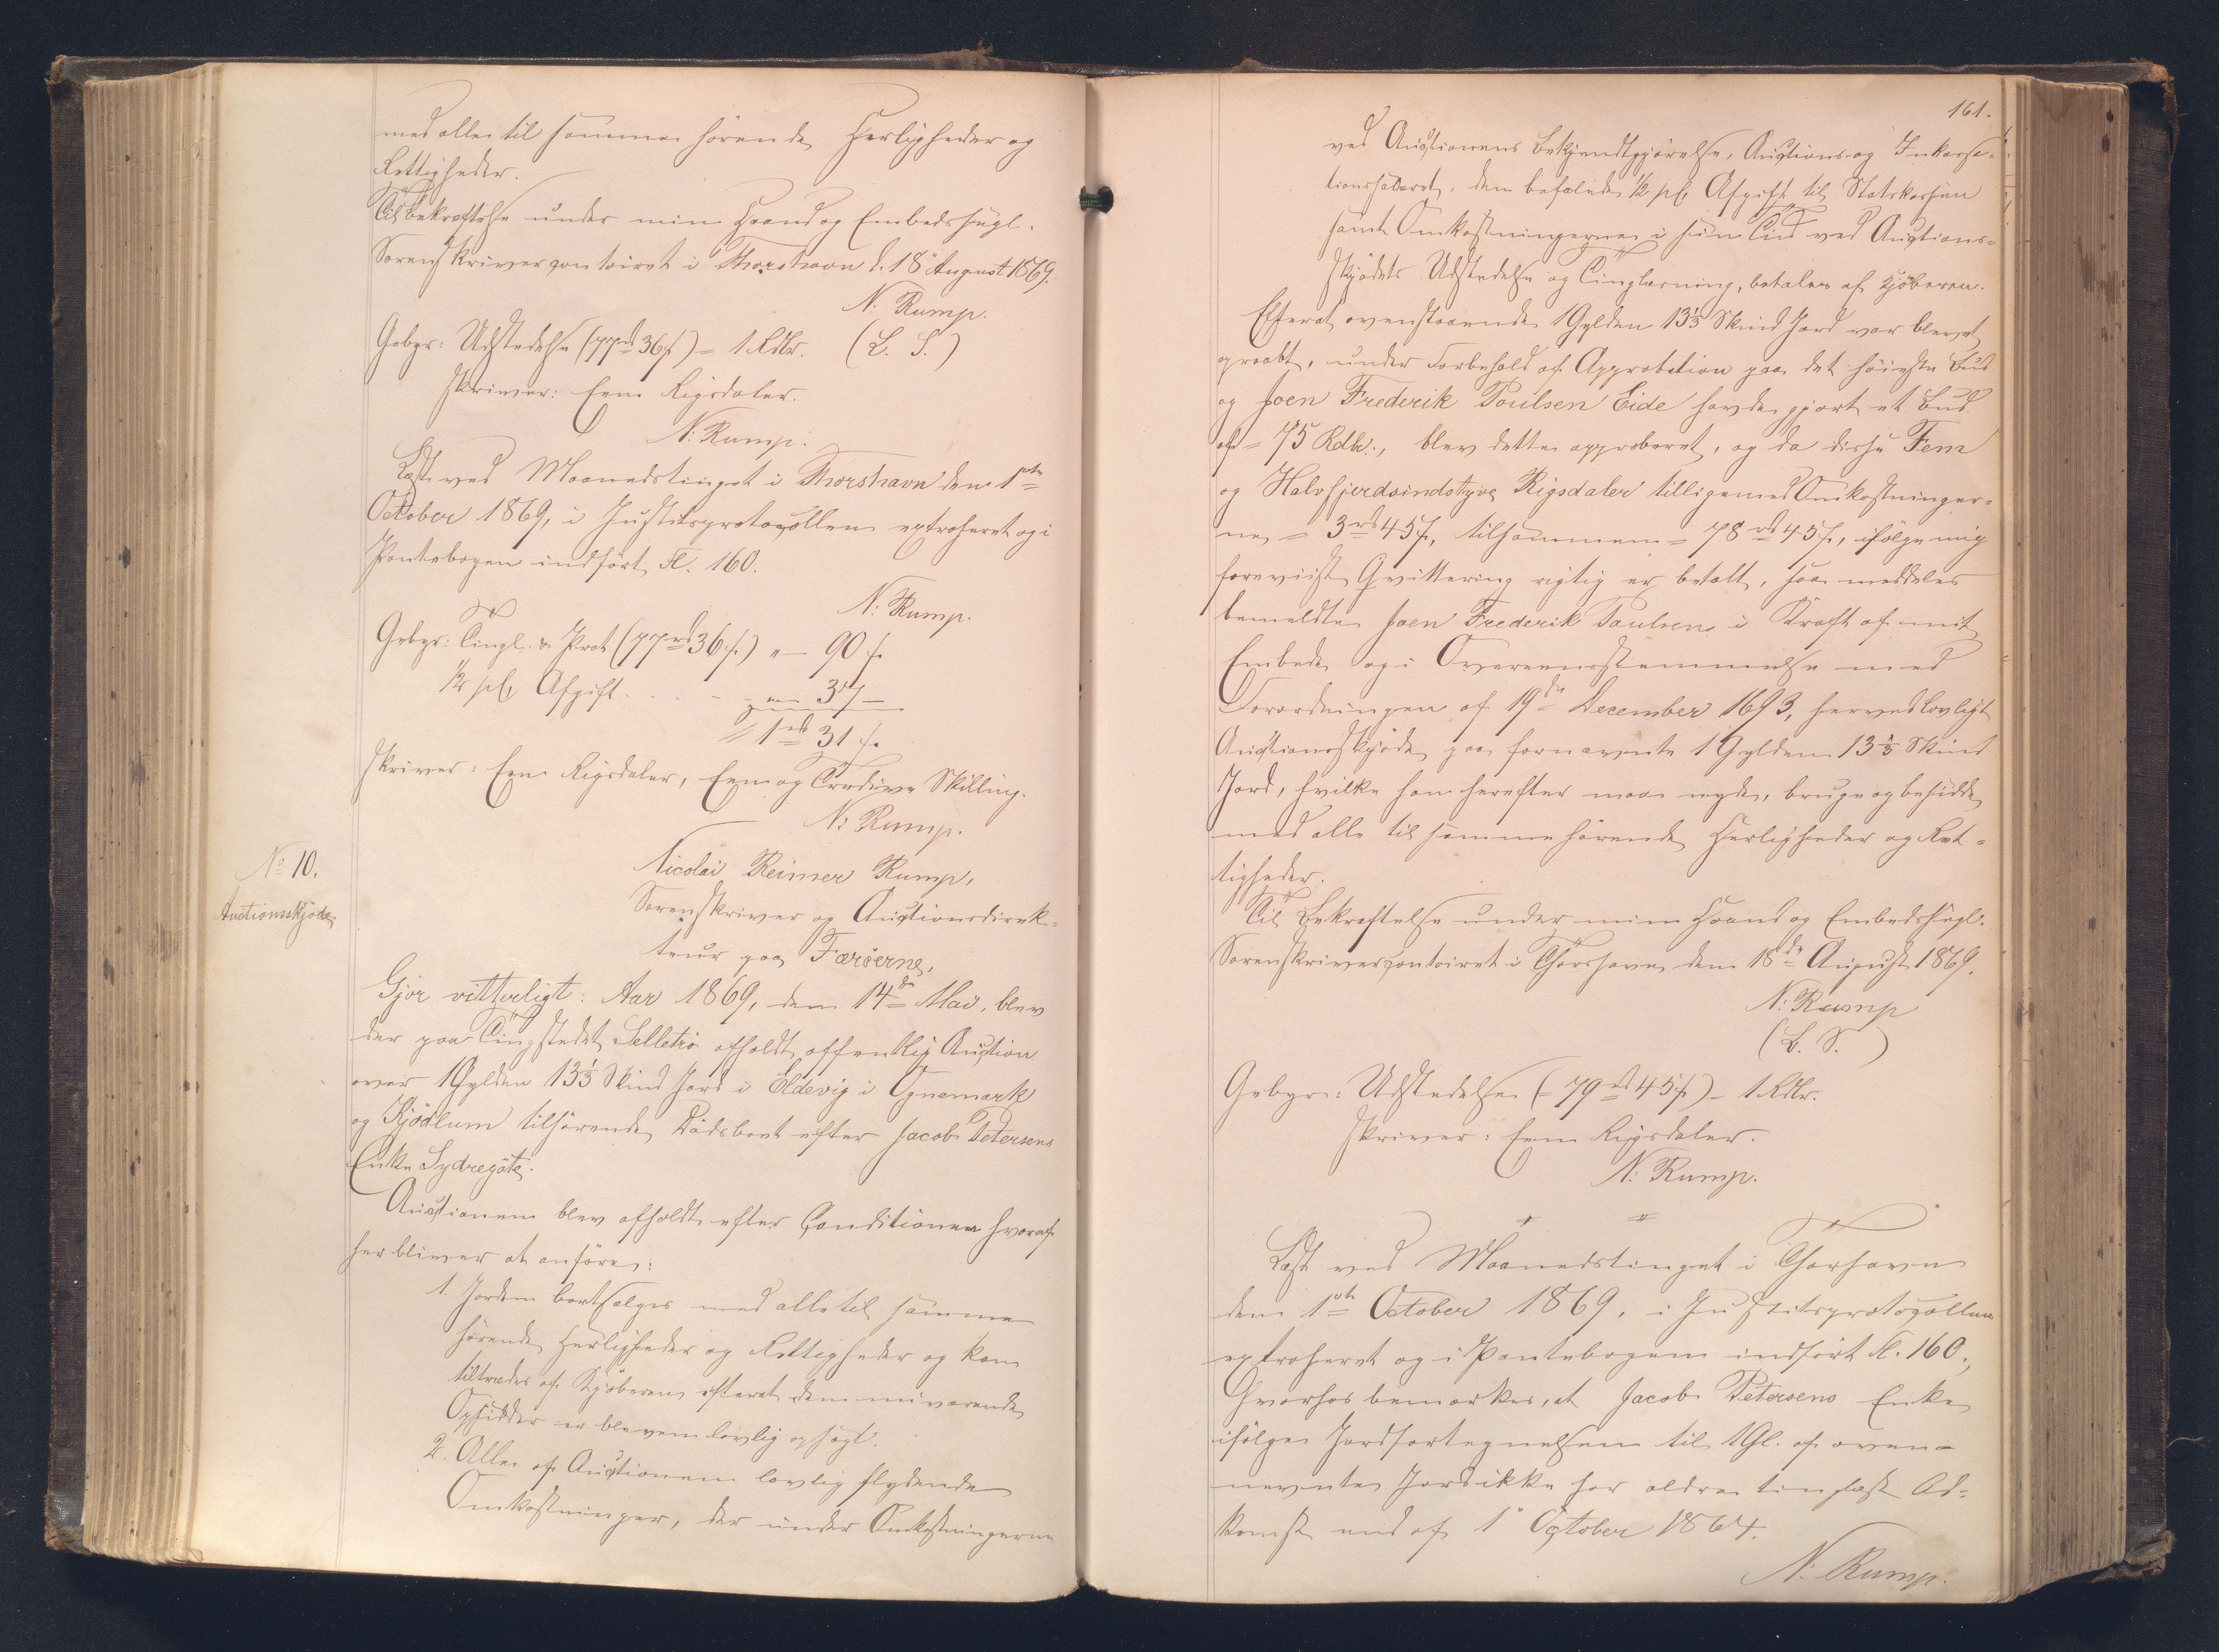 med alle til samme hörende Herligheder og
Rettigheder.
Til Bekræftelse under min Haand og Embedssegl.
Sorenskrivercontoiret i Thorshavn d. 18 August 1869.
N: Rump.
Gebyr: Udstedelse (77rd 36s) = 1 Rdlr. (L. S.)
skriver: Een Rigsdaler.
N: Rump.
Læst ved Maanedstinget i Thorshavn den 1ste
October 1869, i Justitsprotocollen extraheret og i
Pantebogen indført Fl. 160.
N: Rump.
Gebyr: Tingl. & Prot (77rd 36s) „ — 90 s.
1/2 pCt Afgift . . . „ — 37 —
1rd 31 s.
skriver: Een Rigsdaler, Een og Tredive Skilling.
N: Rump.
No 10.
Auctionsskjöde.
Nicolai Reimer Rump,
Sorenskriver og Auctionsdirek-
teur paa Færöerne,
Gjør vitterligt: Aar 1869, den 14de Mai, blev
der paa Tingstedet Selletrö afholdt offentlig Auction
over 1 Gylden 13 1/3 Skind Jord i Eldevig i Ognemark
og Kjödlum tilhörende Dödsboet efter Jacob Petersens
Enke Sydregöte.
Auctionen blev afholdt efter Conditioner hvoraf
her bliver at anföre:
1. Jorden bortsælges med alle til samme
hörende Herligheder og Rettigheder og kan
tiltrædes af Kjöberen efterat den nuværende
Opsidder er bleven lovlig opsagt.
2. Alle af Auctionen lovlig flydende
Omkostninger, der under Omkostningerne
161.
ved Auctionens Bekjendtgjörelse, Auctions- og Inkassa-
tionssalaret, den befalede 1/2 pCt Afgift til Statskassen
samt Omkostningerne i sin Tid ved Auctions-
skjödets Udstedelse og Tinglæsning, betales af Kjöberen.
Efterat ovenstaaende 1 Gylden 13 1/3 Skind Jord var blevet
opraabt, under Forbehold af Approbation paa det höieste Bud
og Joen Frederik Poulsen Eide havde gjort et Bud
af = 75 Rdlr., blev dette approberet, og da disse Fem
og Halvfjerdsindstyve Rigsdaler tilligemed Omkostninger-
ne = 3rd 45s, tilsammen = 78rd 45s, ifölge mig
foreviist Qvittering rigtig er betalt, saa meddeles
bemeldte Joen Frederik Paulsen i Kraft af mit
Embede og i Overeensstemmelse med
Forordningen af 19de December 1693, herved lovligt
Auctionsskjöde paa fornævnte 1 Gylden 13 1/3 Skind
Jord, hvilke han herefter maa nyde, bruge og besidde
med alle til samme hörende Herligheder og Ret-
tigheder.
Til Bekræftelse under min Haand og Embedssegl.
Sorenskrivercontoiret i Thorshavn den 18de August 1869.
N: Rump
(L. S.)
Gebyr: Udstedelse (= 79rd 45s) = 1 Rdlr.
skriver: Een Rigsdaler.
N: Rump.
Læst ved Maanedstinget i Thorshavn
den 1ste October 1869, i Justitsprotocollen
extraheret og i Pantebogen indfört Fl. 160.,
Hvorhos bemærkes, at Jacob Petersens Enke
ifölge Jordfortegnelsen til 1 Gl. af oven-
nævnte Jord ikke har ældre tinglæst Ad-
komst end af 1 October 1864.
N. Rump.